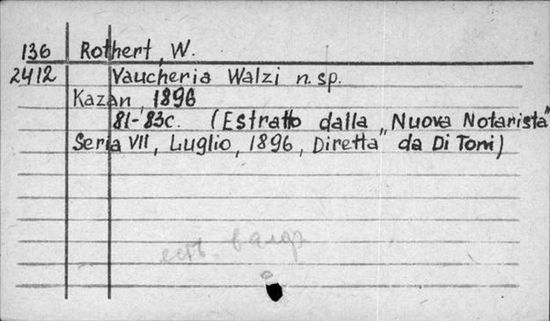 136 Rothert, W.
2412 Vaucheria Walzi n. sp.
Kazan, 1896
81-83c. (Estratto dalla „Nuova Notarista"
Seria VII, Luglio, 1896, Diretta da Di Toni)
есть